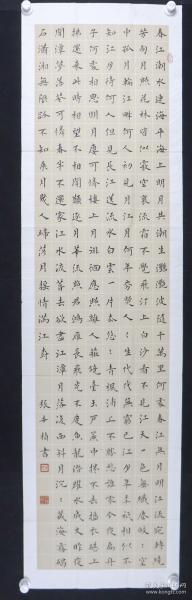 春江潮水連海平海上明月共潮生灩灩波隨千萬里何處春江無月明江流宛轉繞
芳甸月照花林皆似霰空裏流霜不覺飛汀上白沙看不見江天一色無纖塵皎〻空
中孤月輪江畔何人初見月江月何年初照人〻生代〻無窮已江月年〻祇相似不
知江月待何人但見長江送流水白雲一片去悠〻青楓浦上不勝愁誰家今夜扁舟
子何處相思明月樓可憐樓上月徘徊應照離人妝鏡臺玉戶簾中捲不去搗衣砧上
拂還來此時相望不相聞願逐月華流照君鴻雁長飛光不度魚龍潛躍水成文昨夜
閑潭夢落花可憐春半不還家江水流春去欲盡江潭月落復西斜月沉〻藏海霧碣
石瀟湘無限路不知乘月幾人歸落月搖情滿江樹 張 書